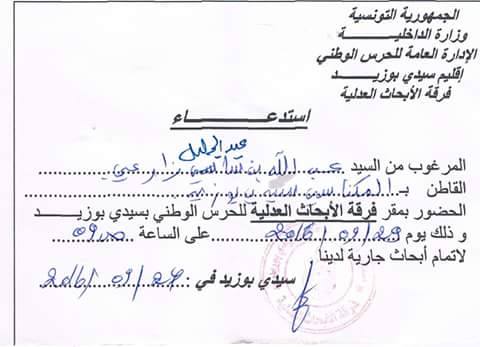 الجمهورية التونسية
وزارة الداخليـــــة
الإدارة العامة للحرس الوطني
إقليم سيدي بوزيــــد
فرقة الأبحاث العدلية
استدعـــــــاء
عبد الجليل
المرغوب من السيد عبد الله بن
القاطن بـ المكناسي سيدي بوزيد
الحضور بمقر فرقة الأبحاث العدلية للحرس الوطني بسيدي بوزيــــد
و ذلك يوم 2016/09/29 على الساعة
لاتمام أبحاث جارية لدينا
سيدي بوزيد في : 2016/09/27